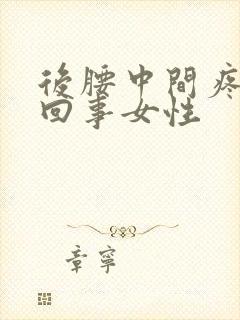 後腰中間疼
回事女性
章寧